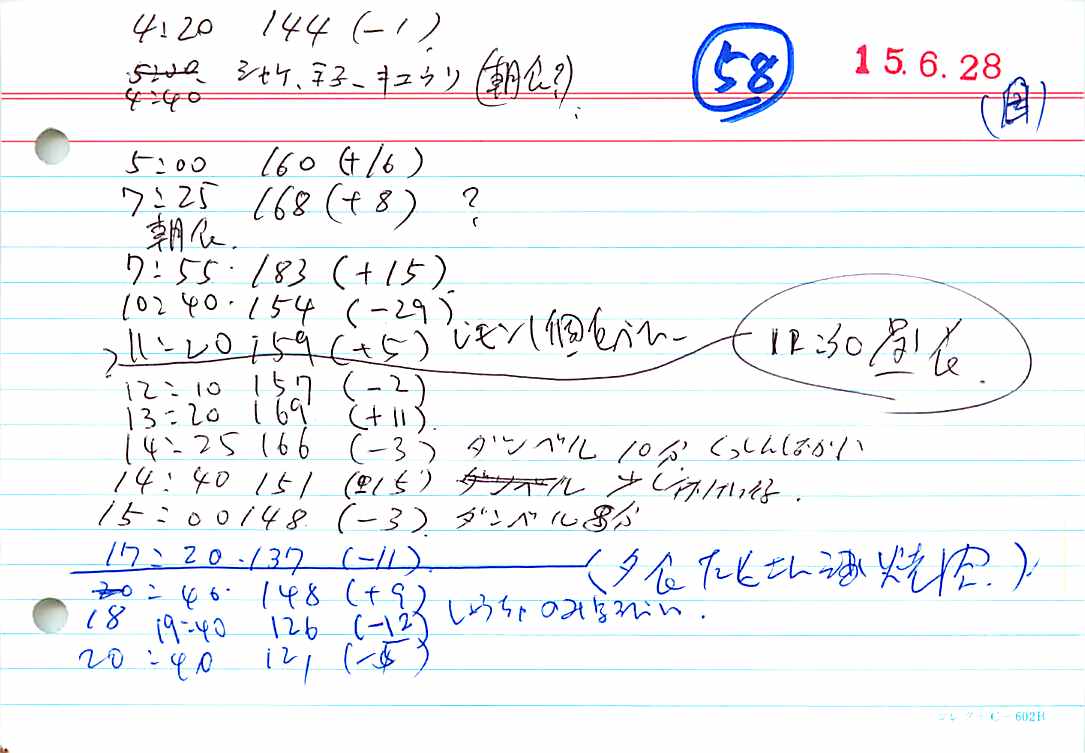 4:20 144 (-1)
58
15.6.28
(日)
5:00
4:40 シャケ、玉子、キュウリ (朝食?)
5:00 160 (+16)
7:25 168 (+8) ?
朝食.
7:55 183 (+15)
10:40 154 (-29)
? 11:20 159 (+5) レモン1個食べた
12:30 昼食.
12:10 157 (-2)
13:20 169 (+11)
14:25 166 (-3) ダンベル 10分 くっしんばかり
14:40 151 (-15) ダンベル 少し
15:00 148 (-3) ダンベル 分
17:20 137 (-11)
(夕食 たくさん 焼)
18:40 148 (+9)
19:40 126 (-12)
20:40 121 (-5)
C-602B